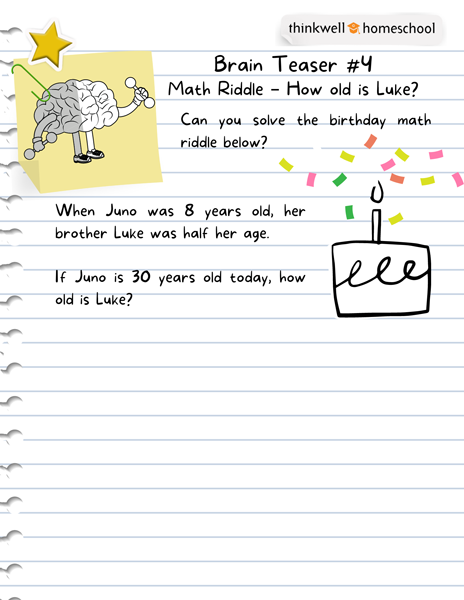 thinkwell homeschool
Brain Teaser #4
Math Riddle – How old is Luke?
Can you solve the birthday math
riddle below?
When Juno was 8 years old, her
brother Luke was half her age.
If Juno is 30 years old today, how
old is Luke?